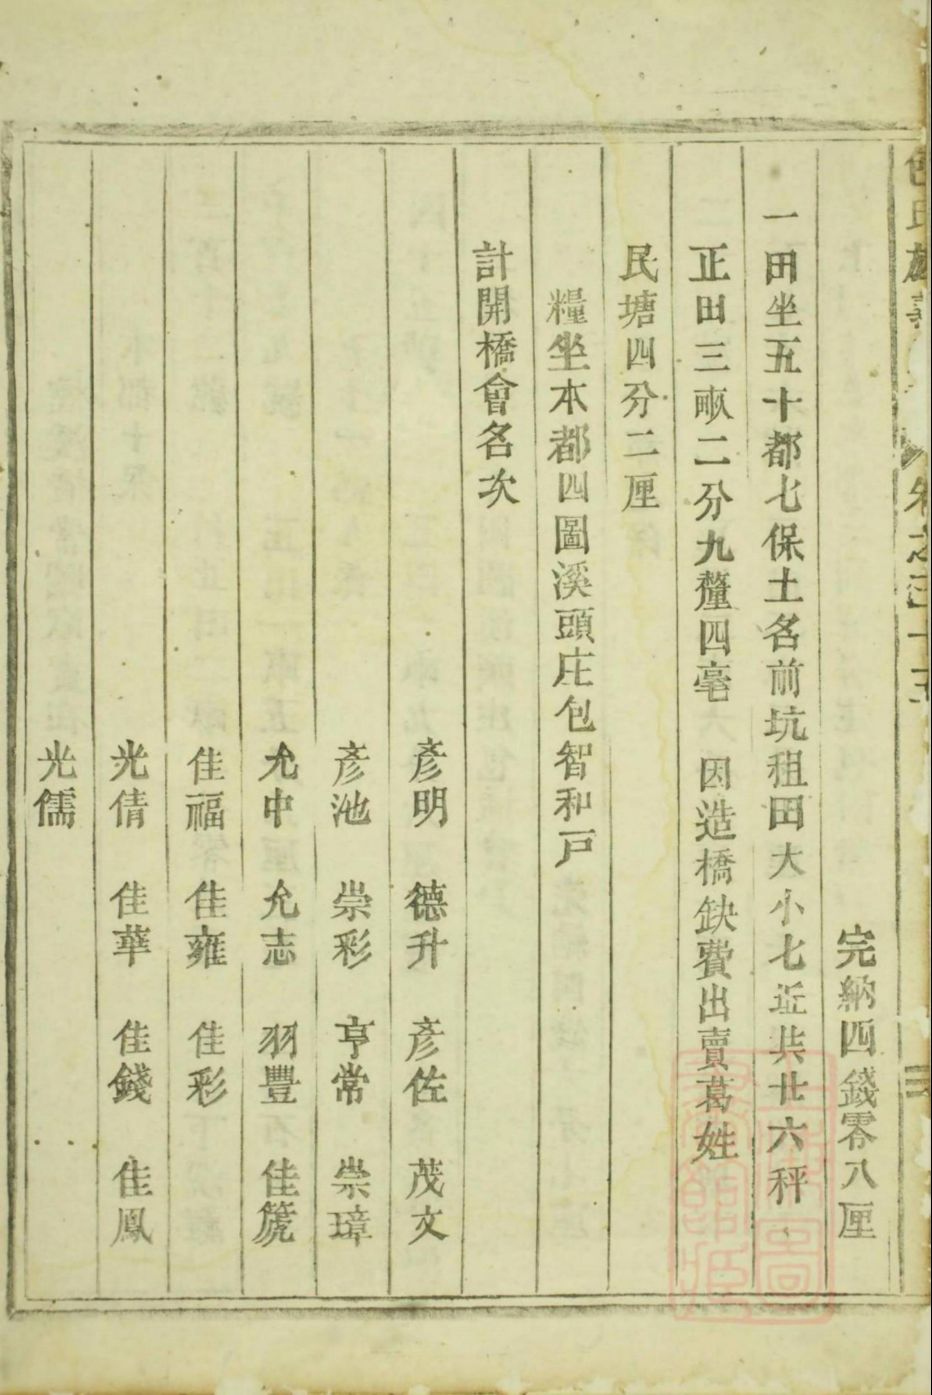 完納四錢零八厘
一田坐五十都七保土名前坑租田大小七近共廿六秤
正田三畝二分九釐四毫 因造橋缺費出賣葛姓
民塘四分二厘
糧坐本都四圖溪頭庄包智和戸
計開橋會名次
彥明 德升 彥佐 茂文
彥池 崇彩 亨常 崇璋
允中 允志 羽豐 佳箎
佳福 佳雍 佳彩
光倩 佳華 佳錢 佳鳳
光儒